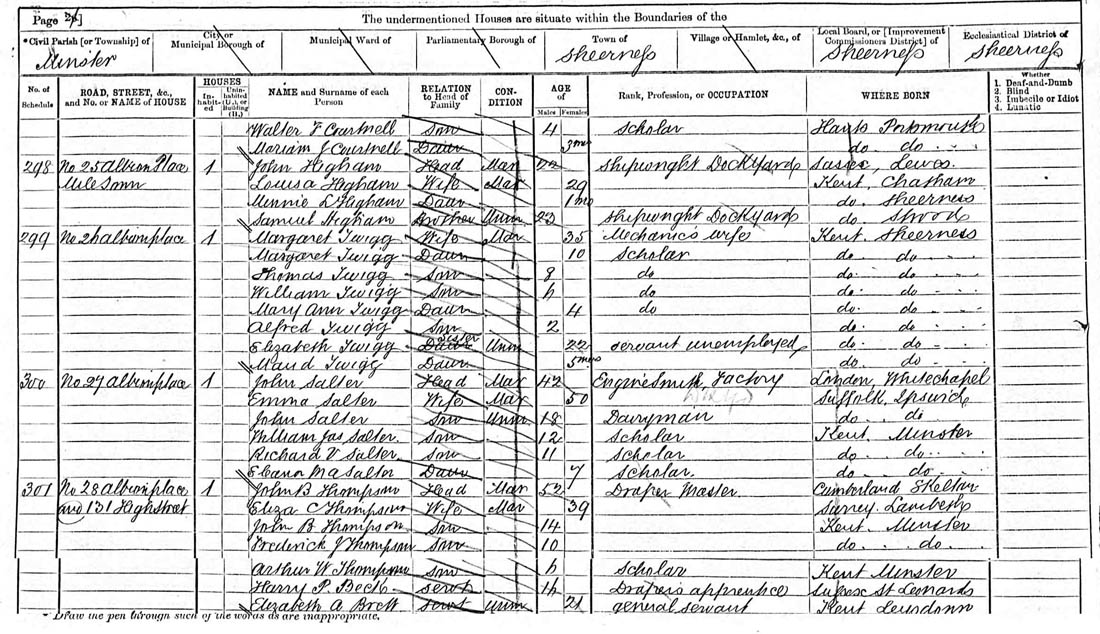 Page 26]
The undermentioned Houses are situate within the Boundaries of the
*Civil Parish [or Township] of City or Municipal Borough of Municipal Ward of Parliamentary Borough of Town of Village or Hamlet, &c., of Local Board, or [Improvement Commissioners District] of Ecclesiastical District of
Minster Sheerness Sheerness Sheerness
No. of Schedule ROAD, STREET, &c., and No. or NAME of HOUSE HOUSES Inhabited Uninhabited (U.), or Building (B.) NAME and Surname of each Person RELATION to Head of Family CONDITION AGE of Males Females Rank, Profession, or OCCUPATION WHERE BORN Whether 1. Deaf-and-Dumb 2. Blind 3. Imbecile or Idiot 4. Lunatic
Walter F Courtnell Son 4 Scholar Hants Portsmouth
Mariam J Courtnell Daur 3mo do do
298 No 25 Albion Place 1 John Higham Head Mar Shipwright Dockyard Sussex, Lewes
Mile Town Louisa Higham Wife Mar 29 Kent, Chatham
Minnie L Higham Daur 1mo do Sheerness
Samuel Higham Brother Unm 23 Shipwright Dockyard do Strood
299 No 26 albion place 1 Margaret Twigg Wife Mar 35 Mechanics wife Kent, Sheerness
Margaret Twigg Daur 10 Scholar do do
Thomas Twigg Son 8 do do do
William Twigg Son 6 do do do
Mary Ann Twigg Daur 4 do do do
Alfred Twigg Son 2 do do
Elizabeth Twigg Sister Unm 22 Servant unemployed do do
Maud Twigg Daur 5mos do do
300 No. 27 albion place 1 John Salter Head Mar 42 Engine Smith, Factory London, Whitechapel
Emma Salter Wife Mar 50 Suffolk, Ipswich
John Salter Son Unm 18 Dairyman do do
William Jas Salter Son 12 Scholar Kent, Minster
Richard V Salter Son 11 Scholar do do
Eleanor M A Salter Daur 7 Scholar do do
301 No 28 albion place 1 John B Thompson Head Mar 52 Draper Master Cumberland Skelton
and 131 High Street Eliza C Thompson Wife Mar 39 Surrey Lambeth
John B Thompson Son 14 Kent Minster
Frederick J Thompson Son 10 do do
Arthur W Thompson Son 6 Scholar Kent Minster
Harry P. Beck Servt 16 Drapers apprentice Sussex St Leonards
Elizabeth A Brett Servt Unm 21 general servant Kent Leysdown
* Draw the pen through such of the words as are inappropriate.